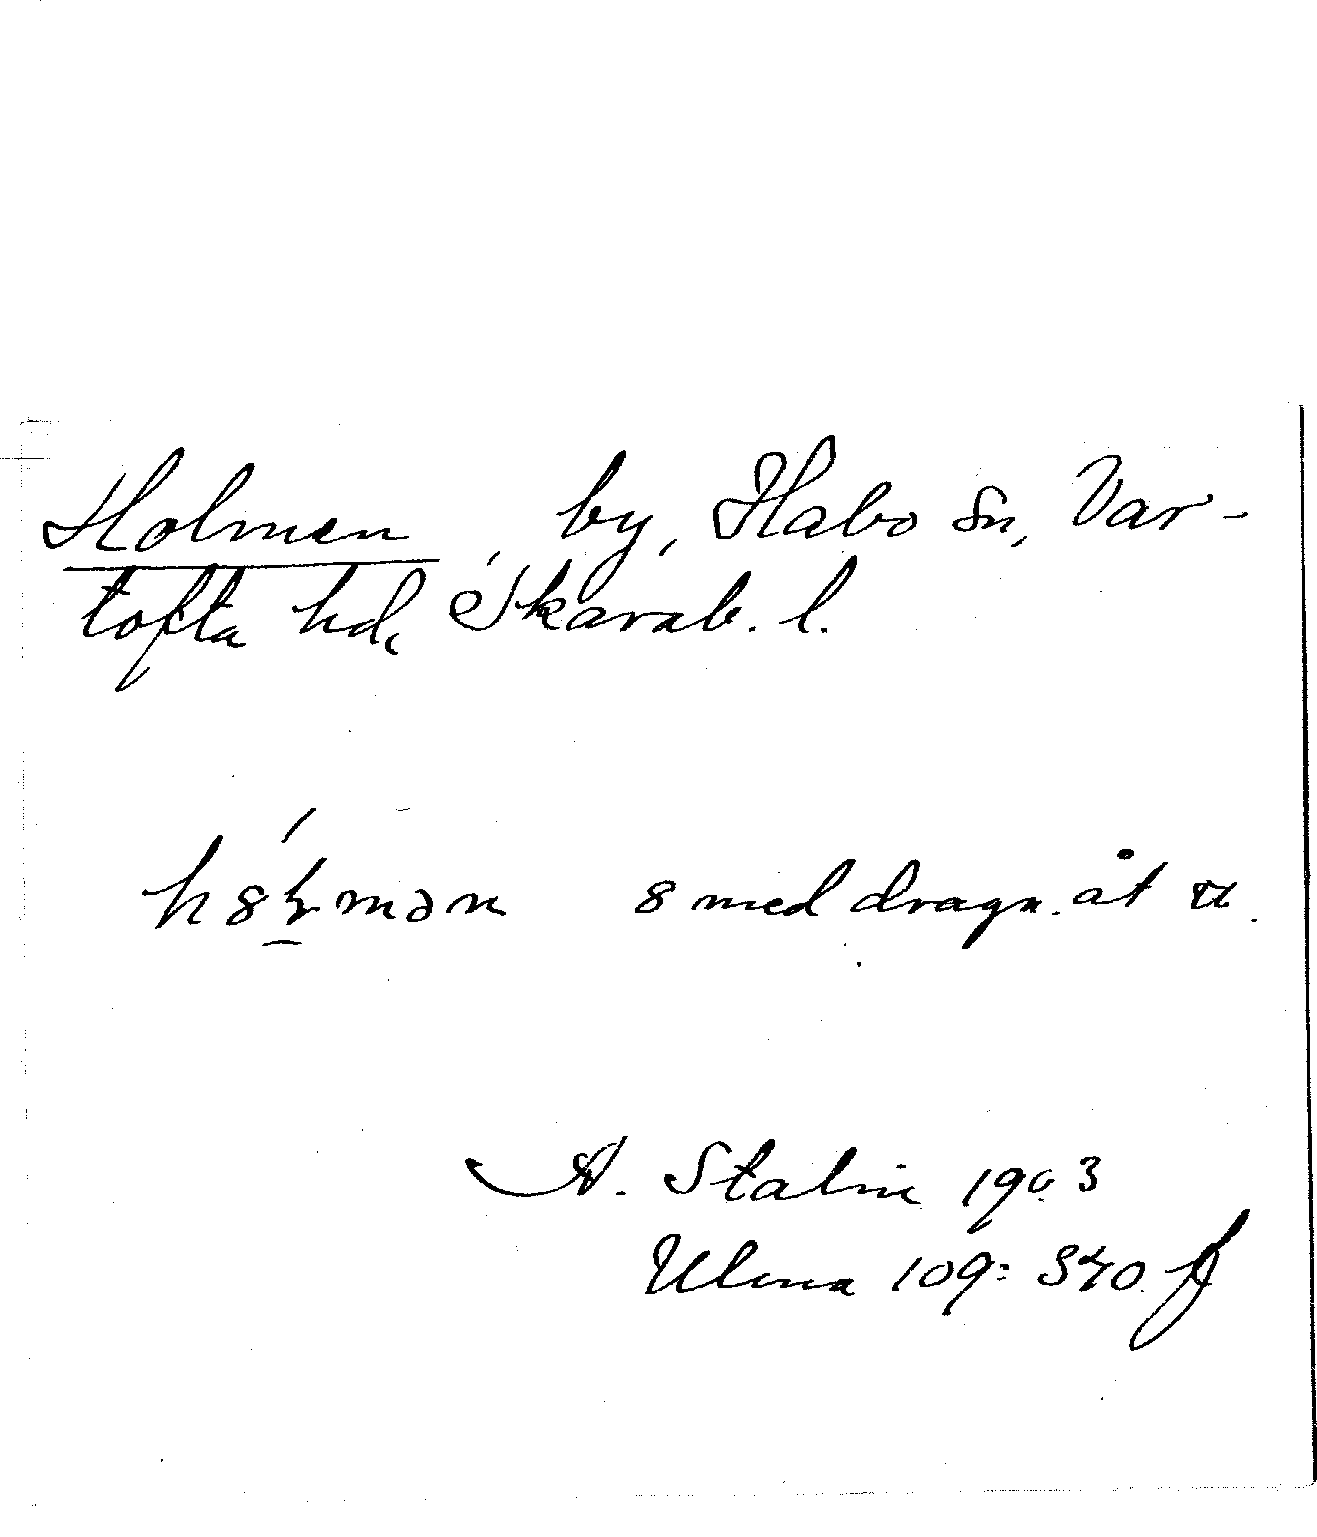 Holmen, by, Habo sn, Var-
tofta hd, Skarab. l.
h8ɫmən 8 med dragn. åt
A. Stalin 1903
Ulma 109: 340.